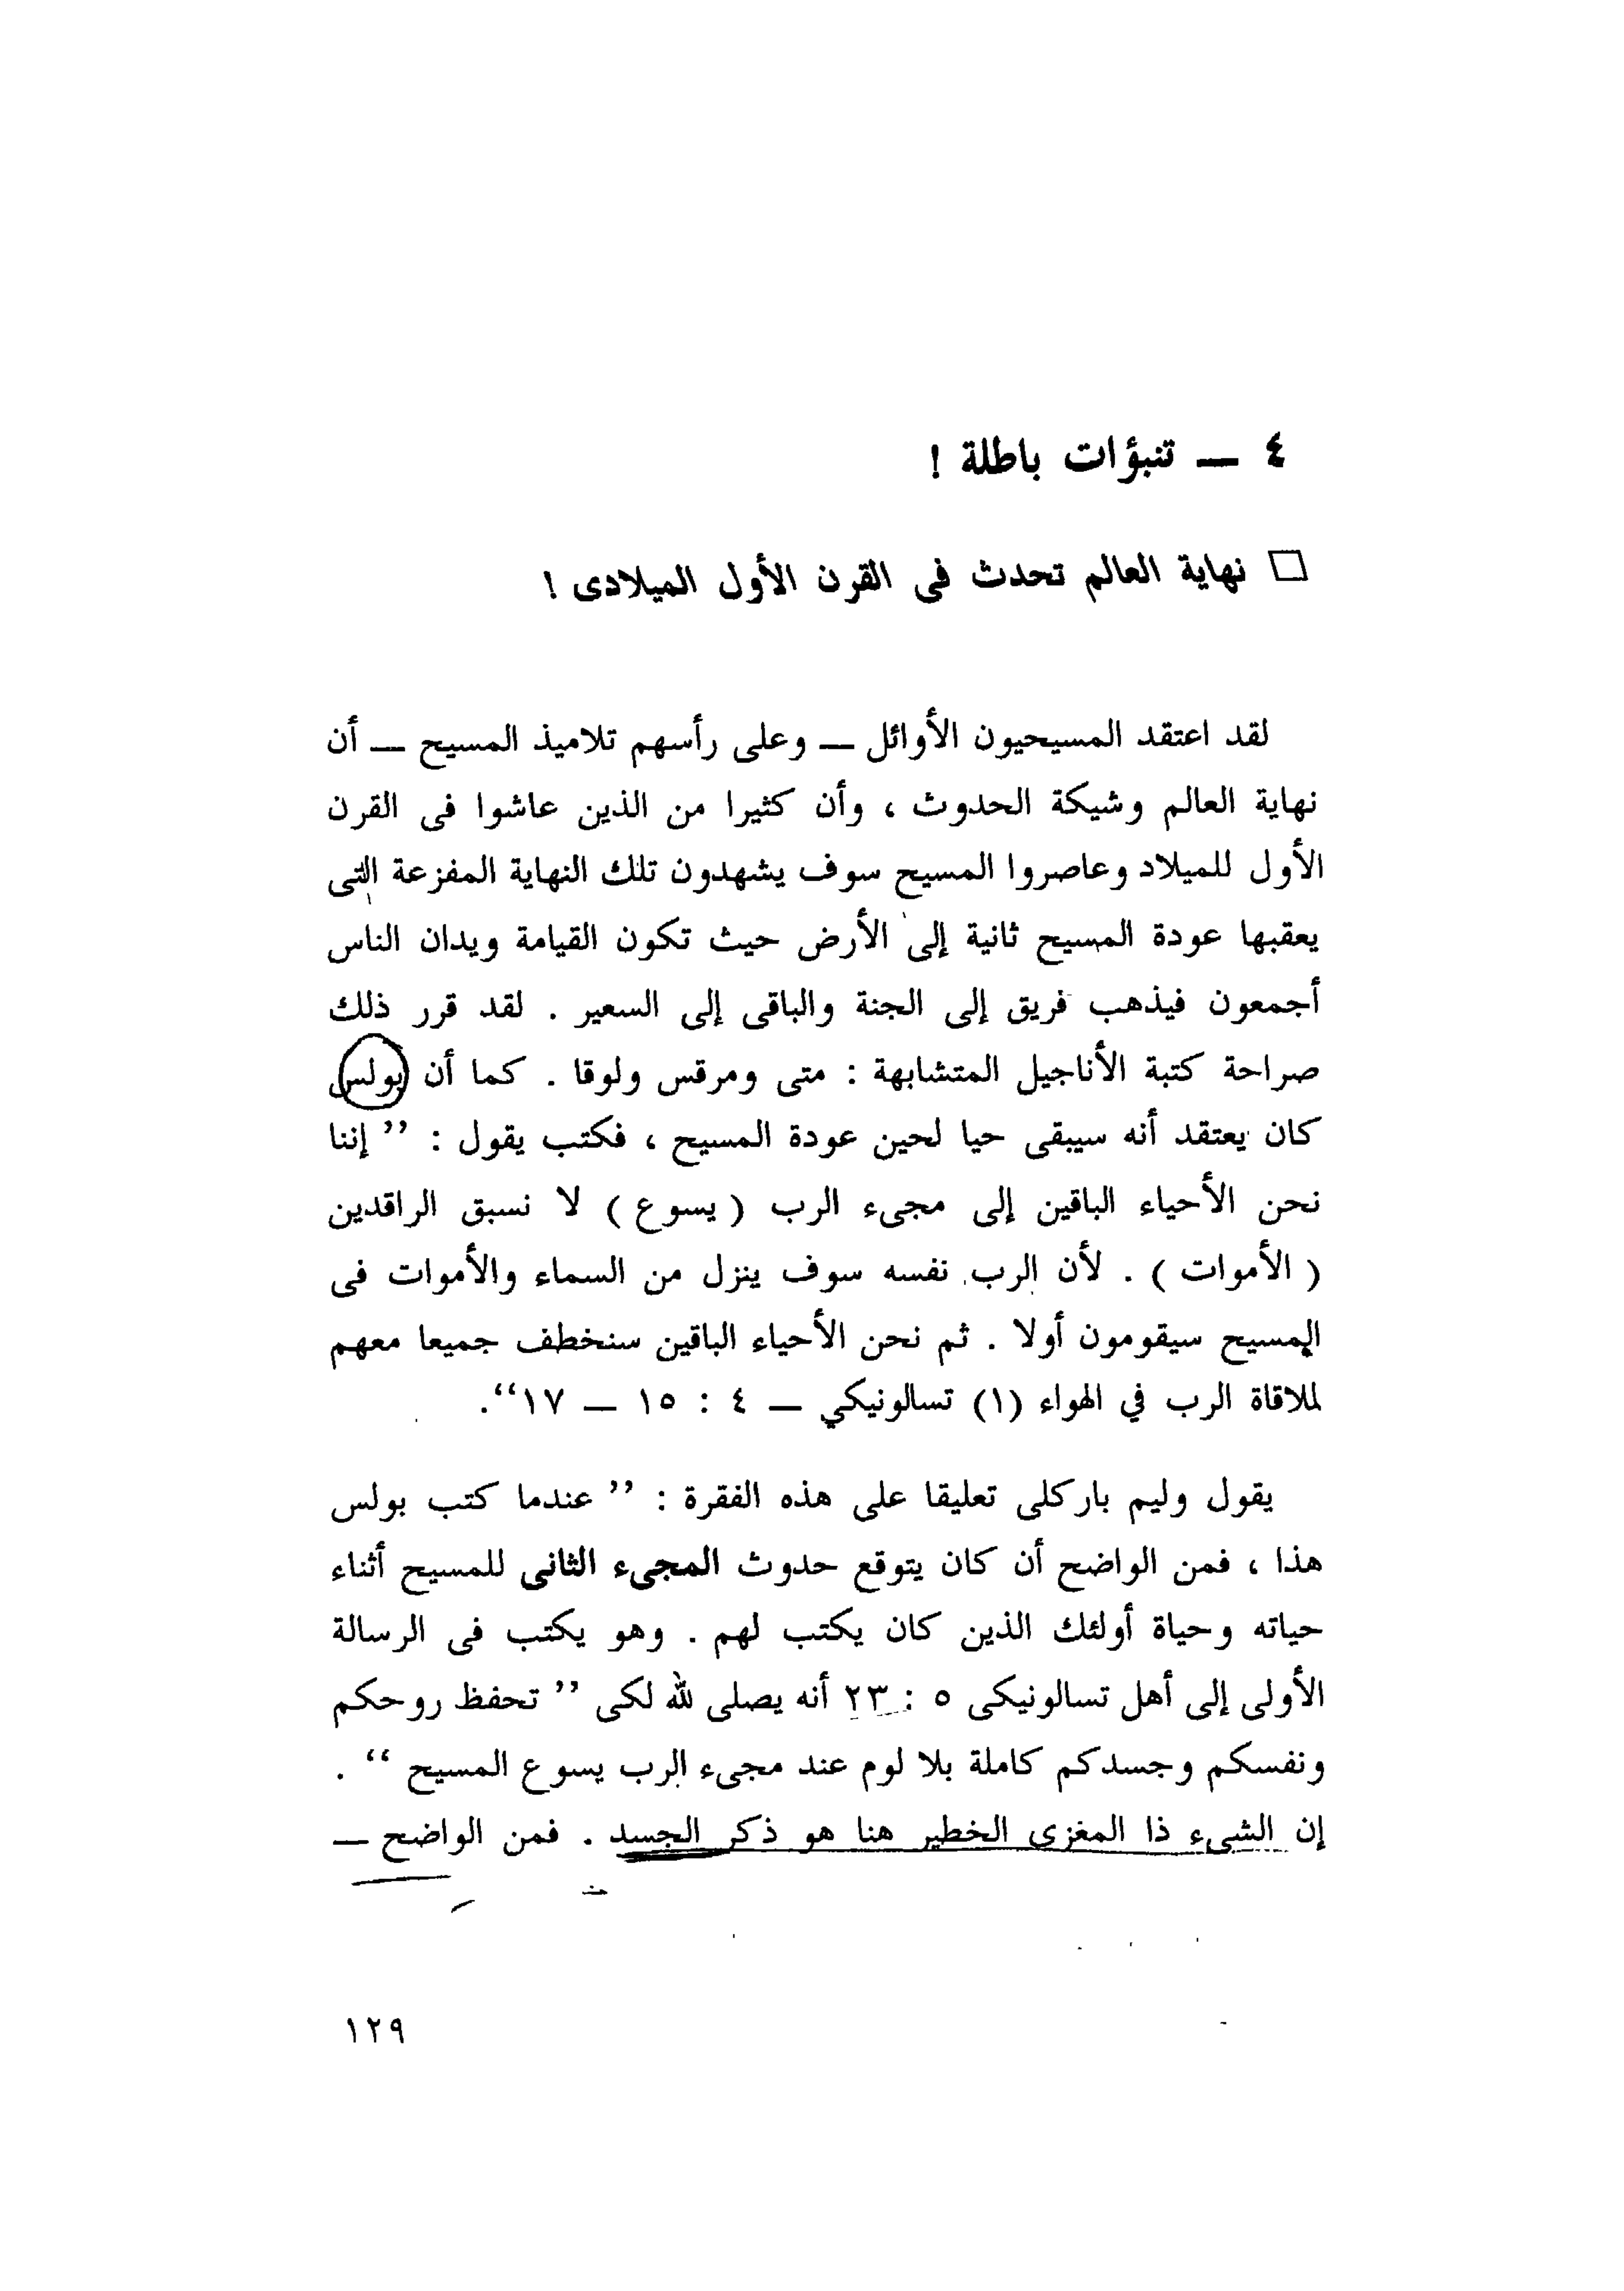 ٤ — تنبؤات باطلة !
□ نهاية العالم تحدث فى القرن الأول الميلادى !
لقد اعتقد المسيحيون الأوائل — وعلى رأسهم تلاميذ المسيح — أن
نهاية العالم وشيكة الحدوث ، وأن كثيرا من الذين عاشوا فى القرن
الأول للميلاد وعاصروا المسيح سوف يشهدون تلك النهاية المفزعة التى
يعقبها عودة المسيح ثانية إلى الأرض حيث تكون القيامة ويدان الناس
أجمعون فيذهب فريق إلى الجنة والباقى إلى السعير . لقد قرر ذلك
صراحة كتبة الأناجيل المتشابهة : متى ومرقس ولوقا . كما أن بولس
كان يعتقد أنه سيبقى حيا لحين عودة المسيح ، فكتب يقول : ’’ إننا
نحن الأحياء الباقين إلى مجىء الرب ( يسوع ) لا نسبق الراقدين
( الأموات ) . لأن الرب نفسه سوف ينزل من السماء والأموات فى
المسيح سيقومون أولا . ثم نحن الأحياء الباقين سنخطف جميعا معهم
لملاقاة الرب في الهواء (١) تسالونيكي — ٤ : ١٥ — ١٧‘‘.
يقول وليم باركلى تعليقا على هذه الفقرة : ’’ عندما كتب بولس
هذا ، فمن الواضح أن كان يتوقع حدوث المجىء الثانى للمسيح أثناء
حياته وحياة أولئك الذين كان يكتب لهم . وهو يكتب فى الرسالة
الأولى إلى أهل تسالونيكى ٥ : ٢٣ أنه يصلى لله لكى ’’ تحفظ روحكم
ونفسكم وجسدكم كاملة بلا لوم عند مجىء الرب يسوع المسيح ‘‘ .
إن الشىء ذا المغزى الخطير هنا هو ذكر الجسد . فمن الواضح —
١٢٩